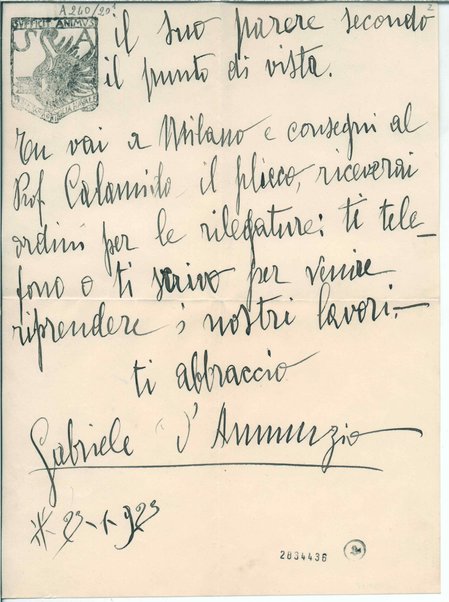 A 240/201
2
SVFFICIT ANIMVS
S A
il suo parere secondo
il punto di vista.
Tu vai a Milano e consegni al
Prof Calamido il plicco, riceverai
ordini per le rilegature: ti tele-
fono o ti scrivo per venire
riprendere i nostri lavori.—
ti abbraccio
Gabriele d'Annunzio
23-1-923
2834436